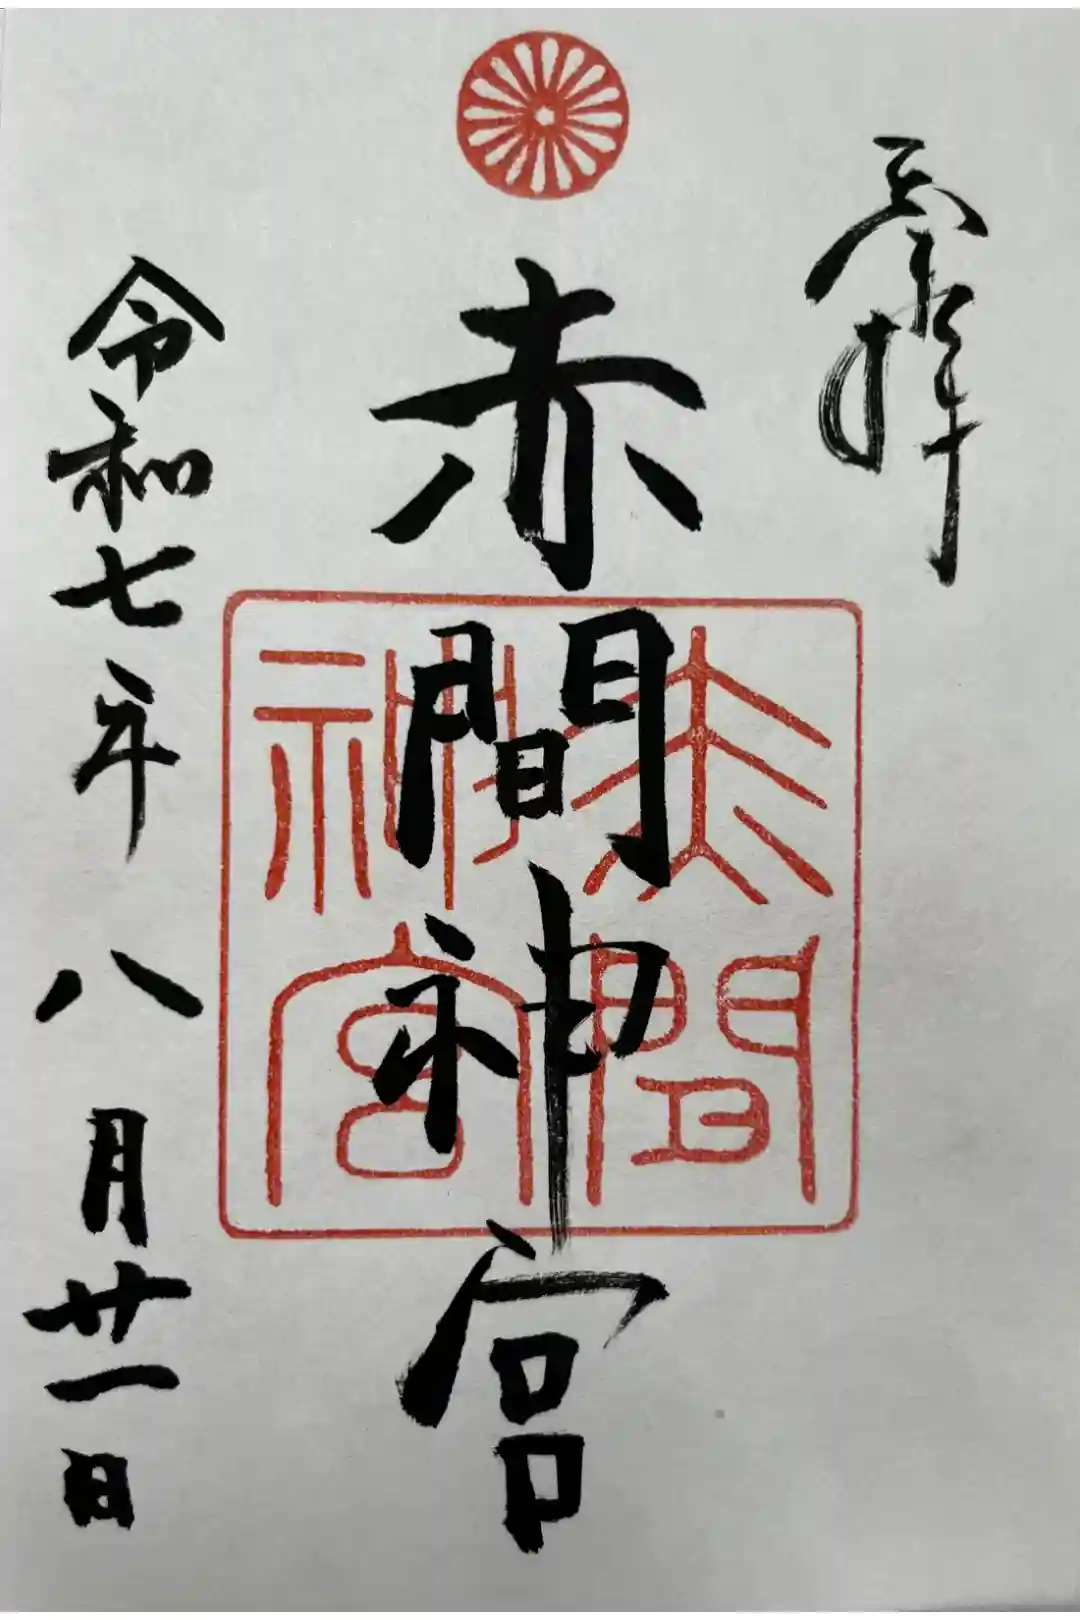 奉拝
赤間神宮
赤間神宮
令和七年八月廿一日